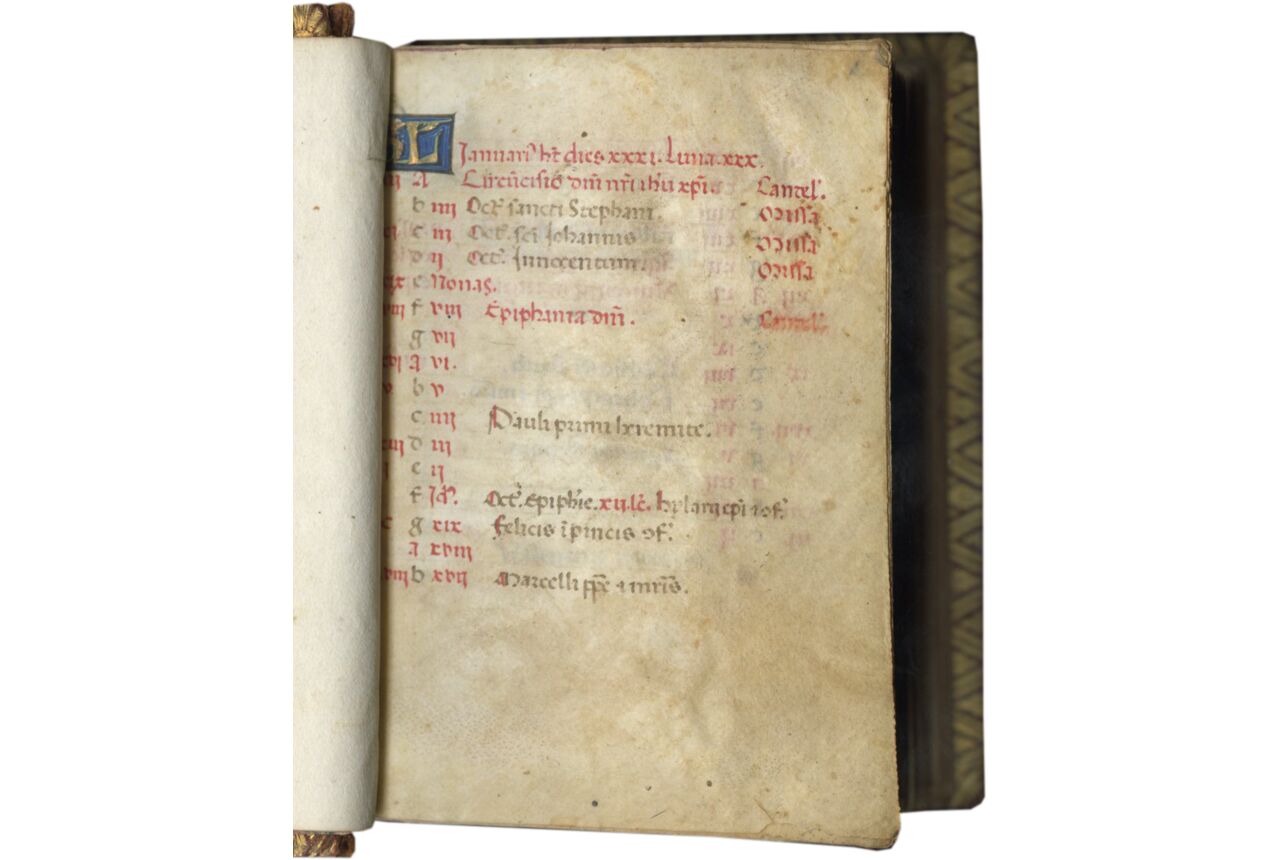 KL Januari' ht dies xxxi. Luna. xxx.
A Circūcisio dn̄i nr̄i ihū xp̄i. Cantel'.
b iiij Oct' sancti Stephani. Missa
c iij Oct'. sc̄i Johannis Missa
d ij Oct'. Innocentum. Missa
e Nonas.
f viij Epiphania dn̄i.
g vij
A vi.
b v
c iiij Pauli primi heremite.
d iij
e ij
f Id'. Oct'. epiphīe. xij. lc̄. hylarij ep̄i ⁊ ɔf'.
g xix Felicis ī pincis ɔf'.
A xviij
b xvij Marcelli pp̄e ⁊ mr̄is.